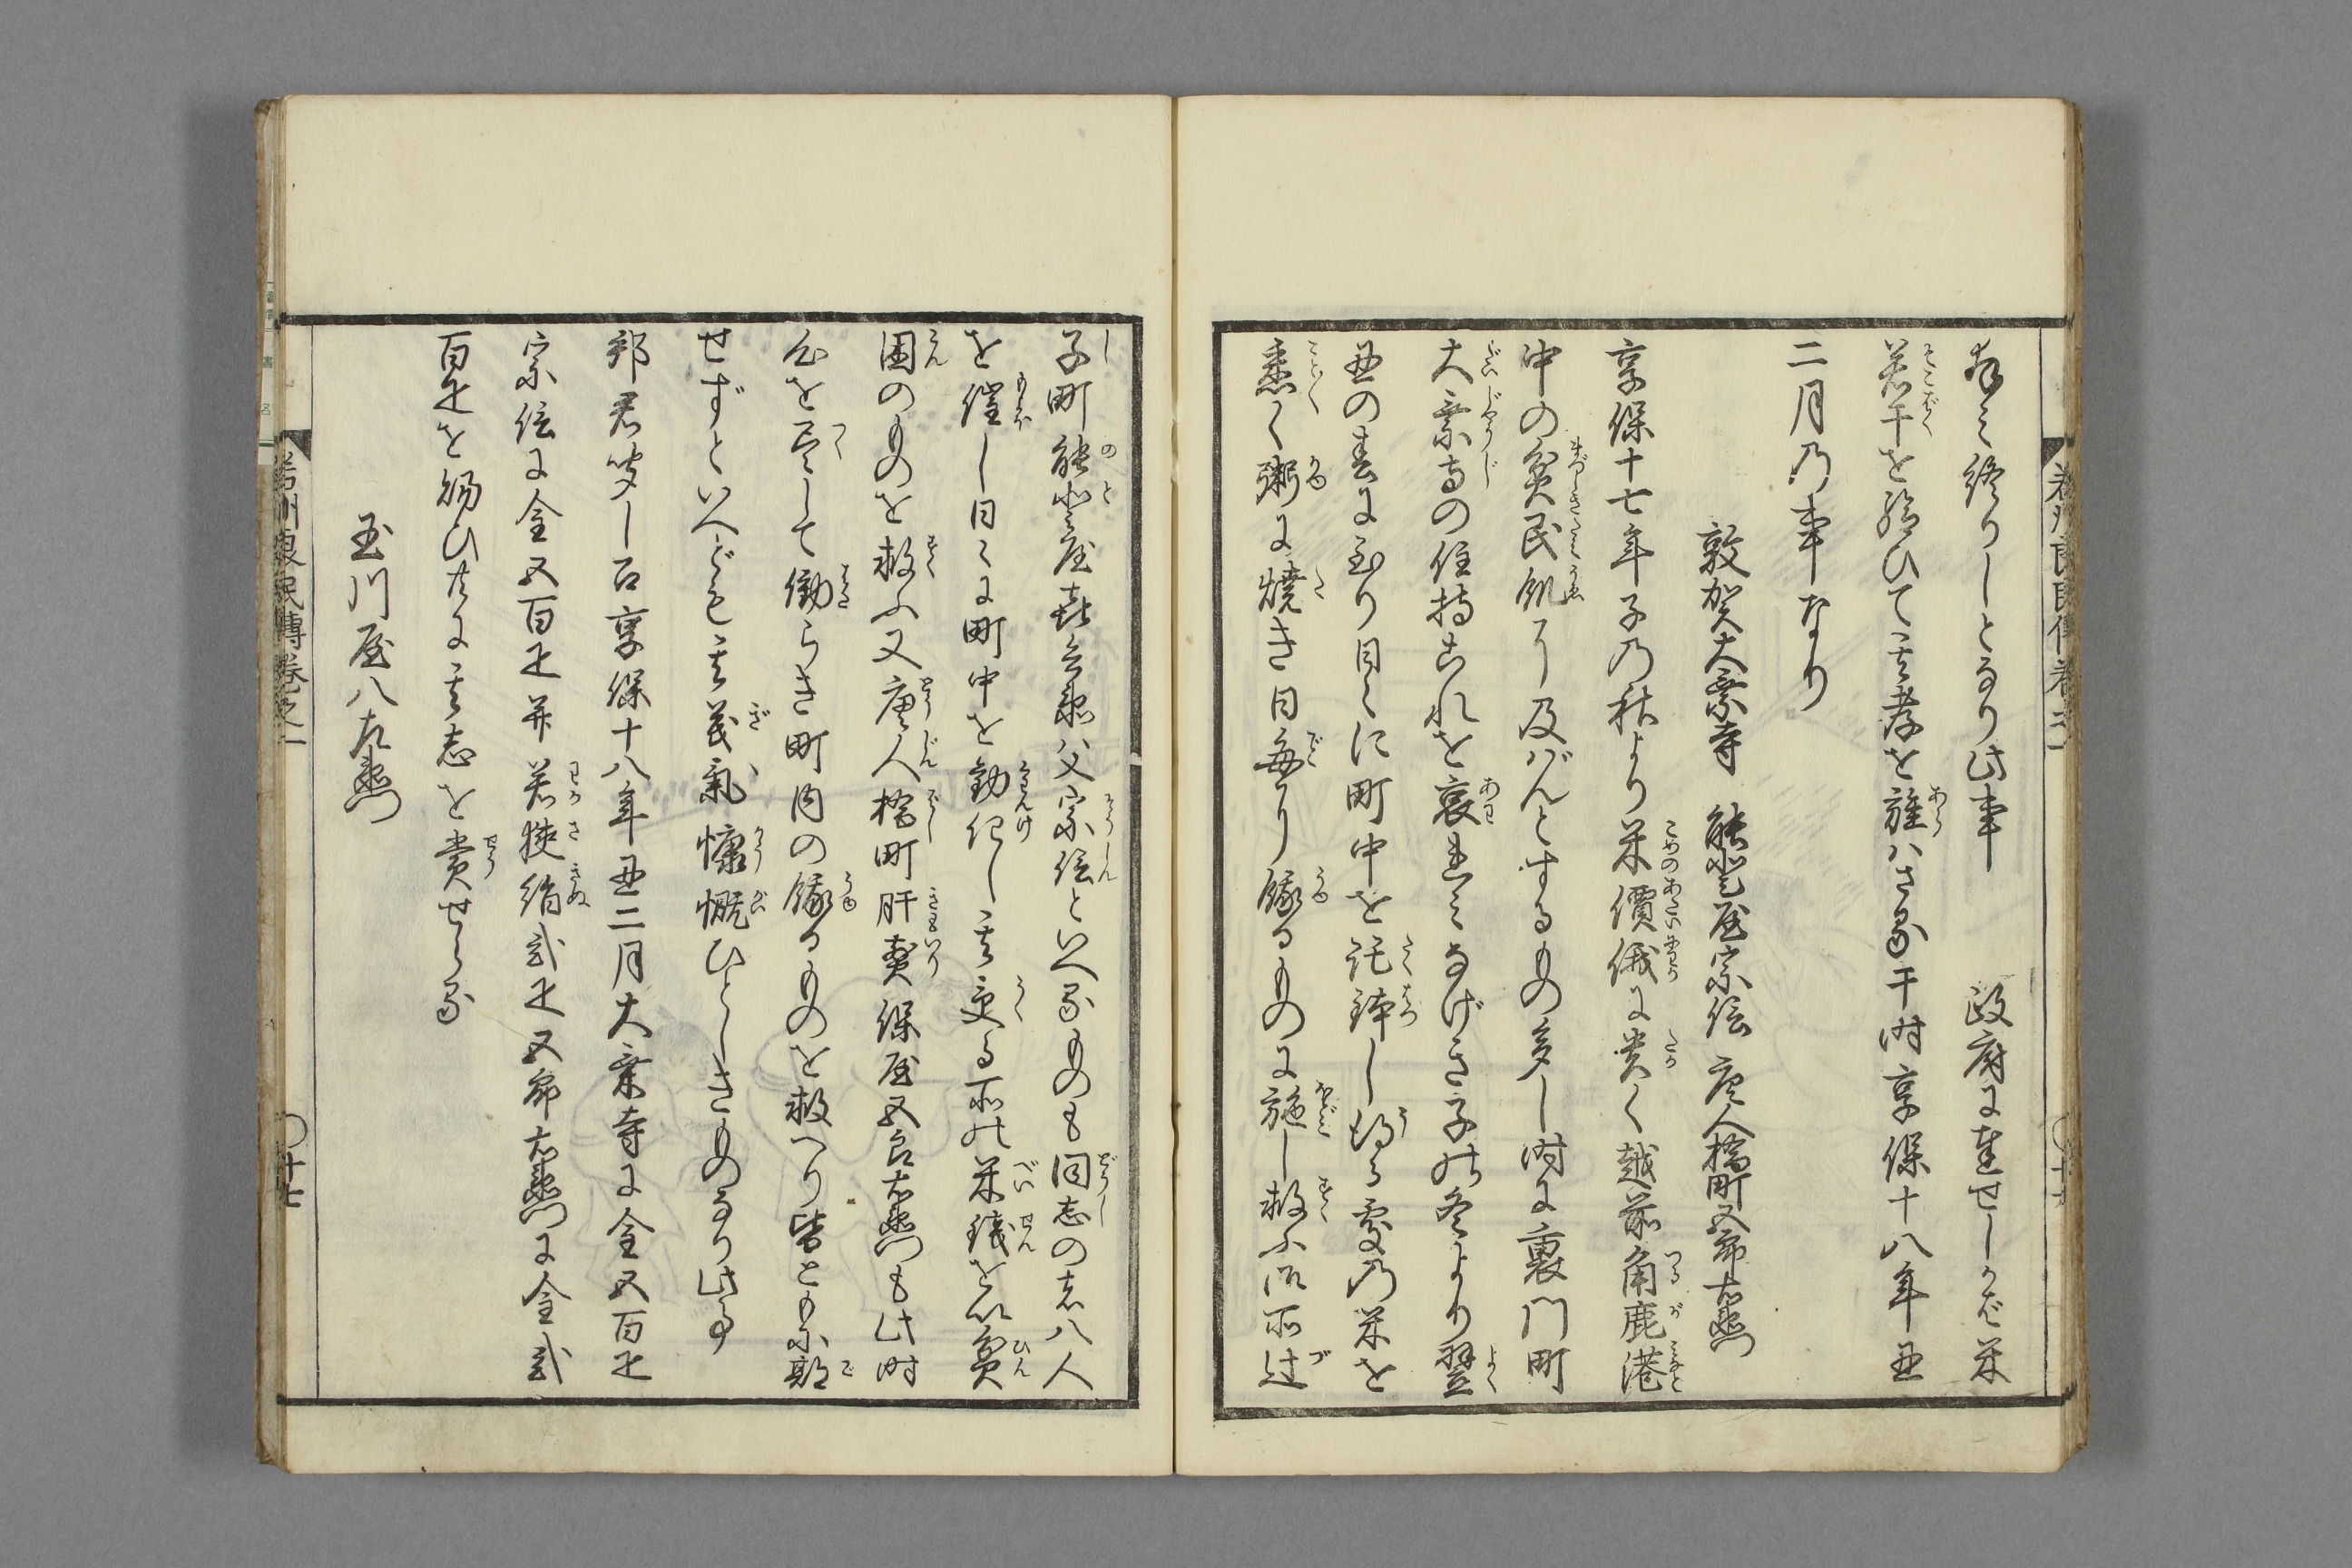 若州良民傳卷之二
孝ミ終りしとなり此事　政府に達せしかば米
若干を給ひて其孝を旌ハさる干時享保十八年丑
二月乃事なり
敦賀大乗寺　能登屋宗伝　唐人橋町五郎右衛門
享保十七年子乃秋より米價俄に貴く越前角鹿港
中の貧民飢に及ばんとするもの多し時に裏門町
大乗寺の住持これを哀れミなげき子の冬より翌
丑の春に至り日〻に町中を託鉢し得る處乃米を
悉く粥に焼き日毎に餓るものに施し救ふ仍而辻
子町能登屋喜兵衛父宗伝といへるもの も同志の者八人
を催し日〻に町中を勧化し其受る所の米錢を以貧
困のものを救ふ又唐人橋町肝煎保屋五良右衛門も此時
心を尽して働らき町内の餓るものを救へり皆ともに期
せずといへども其義氣慷慨ひとしきものなり此事
邦君聞し召享保十八年丑二月大乗寺に金五百疋
宗伝に金五百疋并若狭絹弐疋五郎右衛門に金弐
百疋を賜ひ共に其志を賞せらる
玉川屋八左衛門
若州良民傳卷之二
〇十七